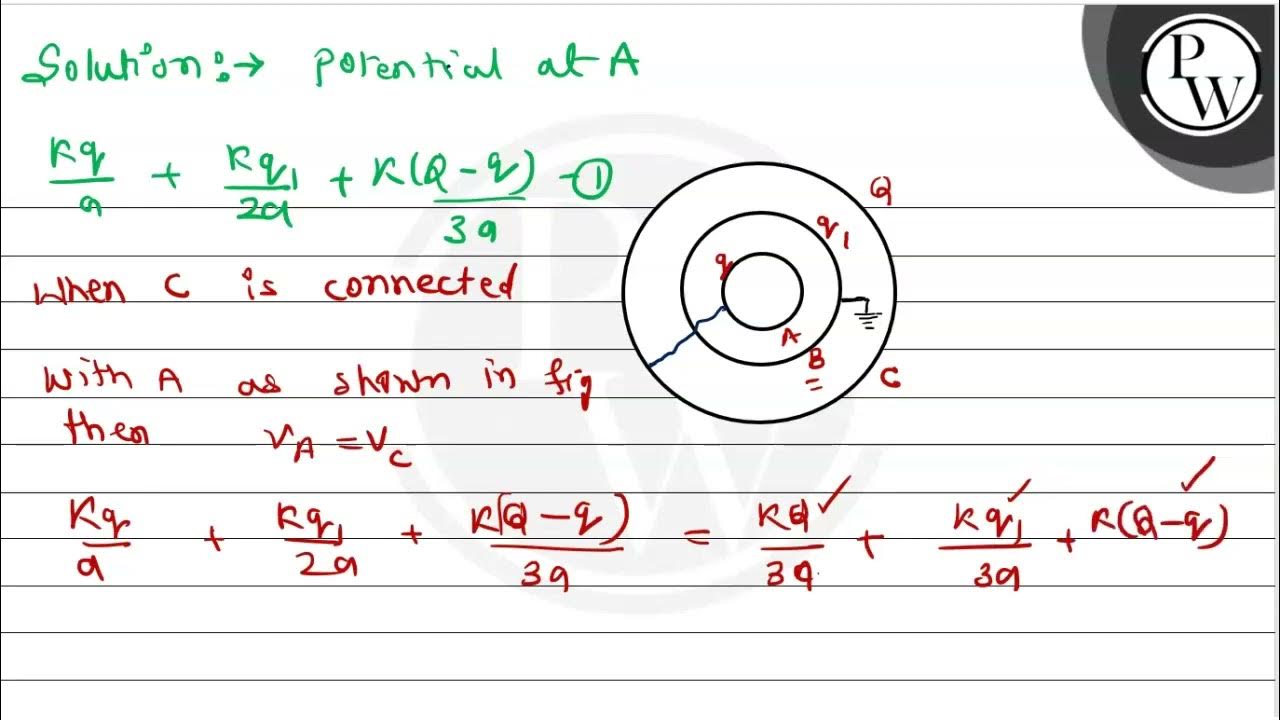 Solution:→ potential at A
Kq/a + Kq1/2a + K(Q-q)/3a -①
When C is connected
With A as shown in fig
then VA = VC
Kq/a + Kq1/2a + K(Q-q)/3a = KQ/3a + Kq1/3a + K(Q-q)
Q
q1
q
A
B
C
PW
PW